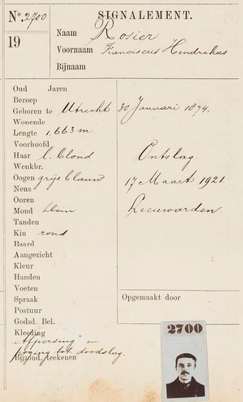 No. 2700 SIGNALEMENT.
19
Naam Rosier
Voornaam Franciscus Hendrikus
Bijnaam
Oud Jaren
Beroep
Geboren te Utrecht 30 Januari 1874.
Wonende
Lengte 1.663 m
Voorhoofd
Haar l. blond Ontslag
Wenkbr.
Oogen grijs blauw 17 Maart 1921
Neus
Ooren
Mond klein Leeuwarden.
Tanden
Kin rond
Baard
Aangezicht
Kleur
Handen
Voeten
Spraak Opgemaakt door
Postuur
Godsd. Bel.
Kleeding
Afpersing en
poging tot doodslag.
Bijzond. teekenen
2700